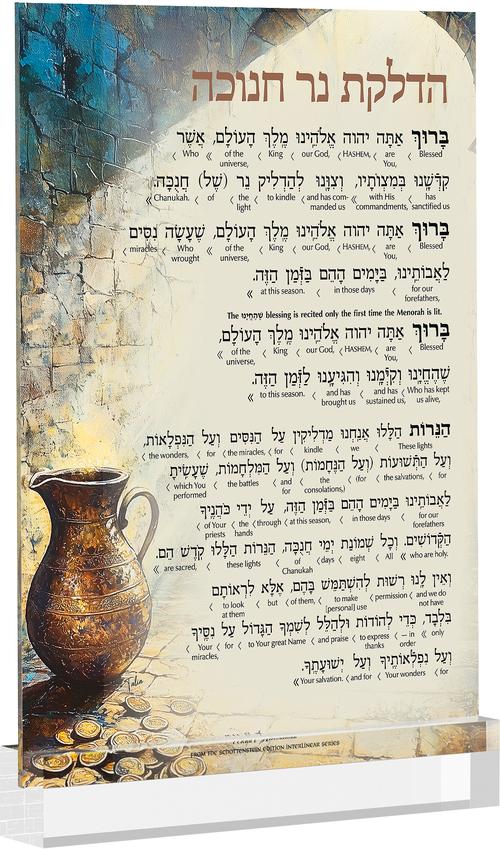 הדלקת נר חנוכה
בָּרוּךְ אַתָּה יהוה אֱלֹהֵֽינוּ מֶֽלֶךְ הָעוֹלָם, אֲשֶׁר
Blessed ‹ are You, ‹ HASHEM, ‹ our God, ‹ King ‹ of the universe, « Who
קִדְּשָֽׁנוּ בְּמִצְוֹתָיו, וְצִוָּֽנוּ לְהַדְלִיק נֵר (שֶׁל) חֲנֻכָּה.
has sanctified us ‹ with His commandments, « and has commanded us ‹ to kindle ‹ the light ‹ of ‹ Chanukah. «
בָּרוּךְ אַתָּה יהוה אֱלֹהֵֽינוּ מֶֽלֶךְ הָעוֹלָם, שֶׁעָשָׂה נִסִּים
Blessed ‹ are You, ‹ HASHEM, ‹ our God, ‹ King ‹ of the universe, « Who wrought ‹ miracles
לַאֲבוֹתֵֽינוּ, בַּיָּמִים הָהֵם בַּזְּמַן הַזֶּה.
for our forefathers, ‹ in those days ‹ at this season. «
The שֶׁהֶחֱיָנוּ blessing is recited only the first time the Menorah is lit.
בָּרוּךְ אַתָּה יהוה אֱלֹהֵֽינוּ מֶֽלֶךְ הָעוֹלָם,
Blessed ‹ are You, ‹ HASHEM, ‹ our God, ‹ King ‹ of the universe, «
שֶׁהֶחֱיָֽנוּ וְקִיְּמָֽנוּ וְהִגִּיעָֽנוּ לַזְּמַן הַזֶּה.
Who has kept us alive, ‹ and has sustained us, ‹ and has brought us ‹ to this season. «
הַנֵּרוֹת הַלָּֽלוּ אֲנַֽחְנוּ מַדְלִיקִין עַל הַנִּסִּים וְעַל הַנִּפְלָאוֹת,
These lights ‹ we ‹ kindle ‹ for ‹ the miracles, ‹ for ‹ the wonders, ‹
וְעַל הַתְּשׁוּעוֹת (וְעַל הַנֶּחָמוֹת) וְעַל הַמִּלְחָמוֹת, שֶׁעָשִֽׂיתָ
for ‹ the salvations, ‹ (for ‹ the consolations,) ‹ and for ‹ the battles ‹ which You performed
לַאֲבוֹתֵֽינוּ בַּיָּמִים הָהֵם בַּזְּמַן הַזֶּה, עַל יְדֵי כֹּהֲנֶֽיךָ
for our forefathers ‹ in those days ‹ at this season, ‹ through ‹ the hands ‹ of Your priests
הַקְּדוֹשִׁים. וְכָל שְׁמוֹנַת יְמֵי חֲנֻכָּה, הַנֵּרוֹת הַלָּֽלוּ קֹֽדֶשׁ הֵם.
who are holy. « All ‹ eight ‹ days ‹ of Chanukah ‹ these lights ‹ are sacred, «
וְאֵין לָֽנוּ רְשׁוּת לְהִשְׁתַּמֵּשׁ בָּהֶם, אֶלָּא לִרְאוֹתָם
and we do not have ‹ permission ‹ to make [personal] use ‹ of them, ‹ but ‹ to look at them
בִּלְבָד, כְּדֵי לְהוֹדוֹת וּלְהַלֵּל לְשִׁמְךָ הַגָּדוֹל עַל נִסֶּֽיךָ
only « — in order ‹ to express thanks ‹ and praise ‹ to Your great Name ‹ for ‹ Your miracles, ‹
וְעַל נִפְלְאוֹתֶֽיךָ וְעַל יְשׁוּעָתֶֽךָ.
for ‹ Your wonders ‹ and for ‹ Your salvation. «
FROM THE SCHOTTENSTEIN EDITION INTERLINEAR SERIES